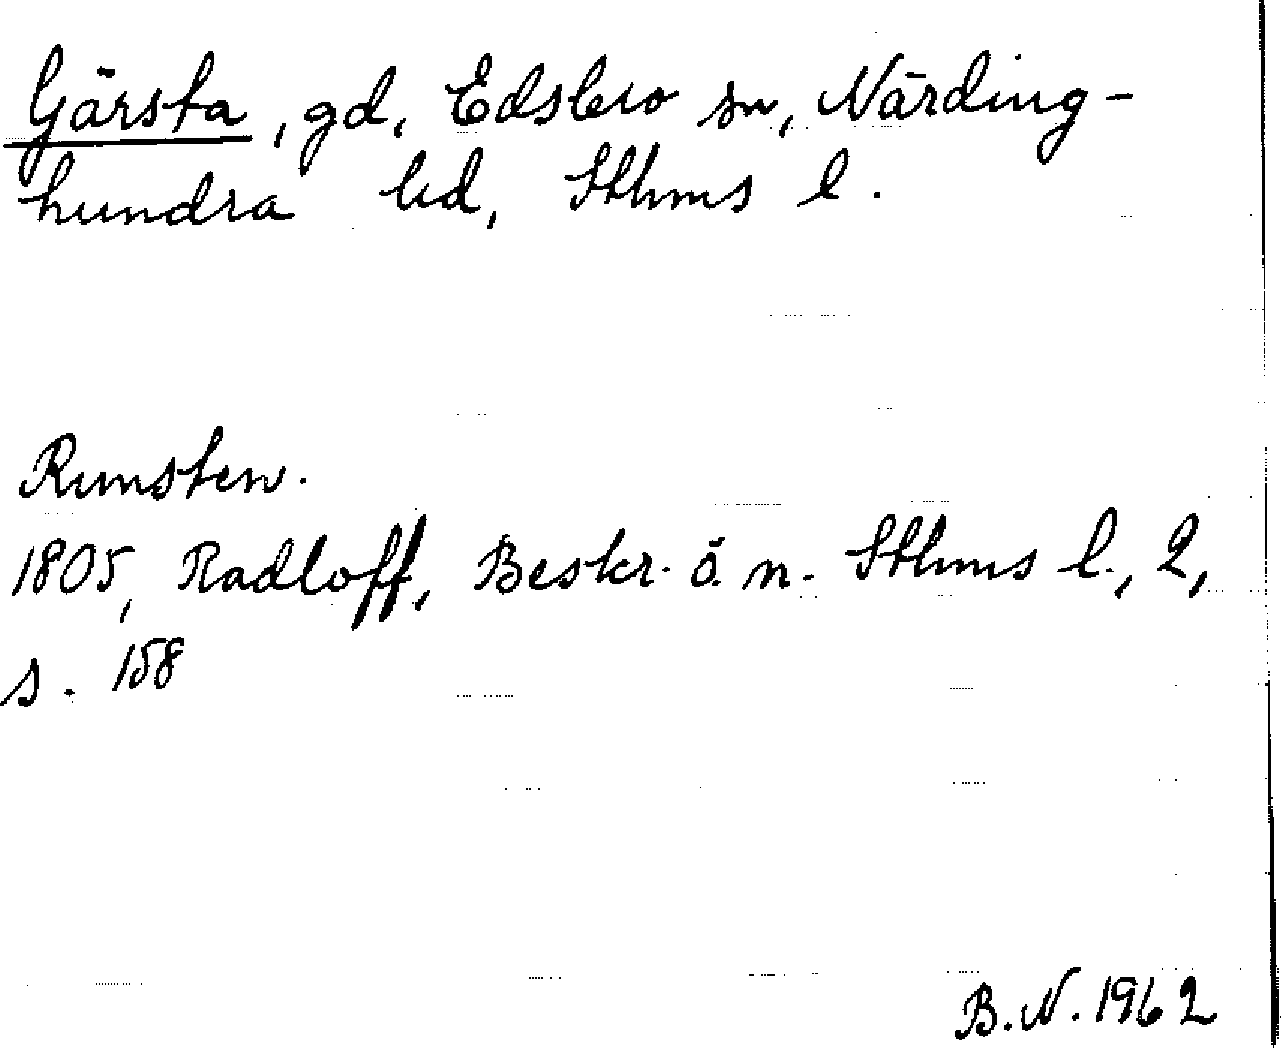 Gärsta, gd, Edsbro sn, Närding-
hundra hd, Sthms l.
Runsten.
1805, Radloff, Beskr. ö. n. Sthms l., 2,
s. 158
B.N. 1962